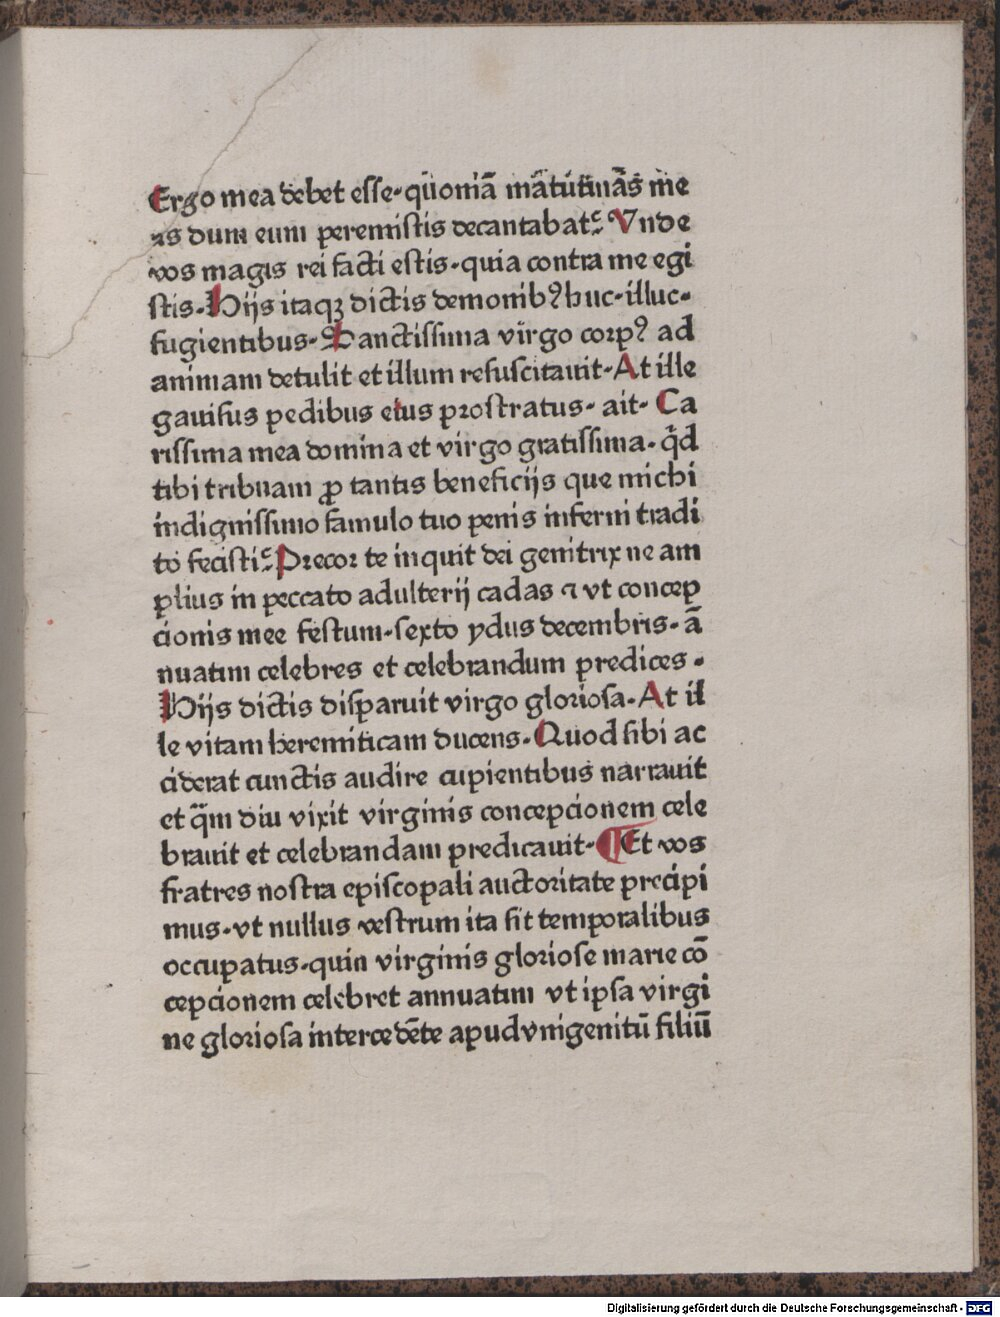 Ergo mea debet esse·quoniā mātutinās me
as dum eum peremistis decantabat· Vnde
vos magis rei facti estis·quia contra me egi
stis·Hijs itaqꝫ dictis demonibꝰ huc·illuc·
fugientibus·Sanctissima virgo corpꝰ ad
animam detulit et illum resuscitauit·At ille
gauisus pedibus eius prostratus· ait· Ca
rissima mea domina et virgo gratissima· qd̄
tibi tribuam ꝓ tantis beneficijs que michi
indignissimo famulo tuo penis inferni tradi
to fecisti·Precor te inquit dei genitrix ne am
plius in peccato adulterij cadas ⁊ vt concep
cionis mee festum·sexto ydus decembris·ā
nuatim celebres et celebrandum predices·
Hijs dictis disparuit virgo gloriosa·At il
le vitam heremiticam ducens·Quod sibi ac
ciderat cunctis audire cupientibus narrauit
et q̄m diu vixit virginis concepcionem cele
brauit et celebrandam predicauit·¶Et vos
fratres nostra episcopali auctoritate precipi
mus·vt nullus vestrum ita sit temporalibus
occupatus·quin virginis gloriose marie cō
cepcionem celebret annuatim vt ipsa virgi
ne gloriosa intercedēte apud vnigenitū filiū
Digitalisierung gefördert durch die Deutsche Forschungsgemeinschaft - DFG